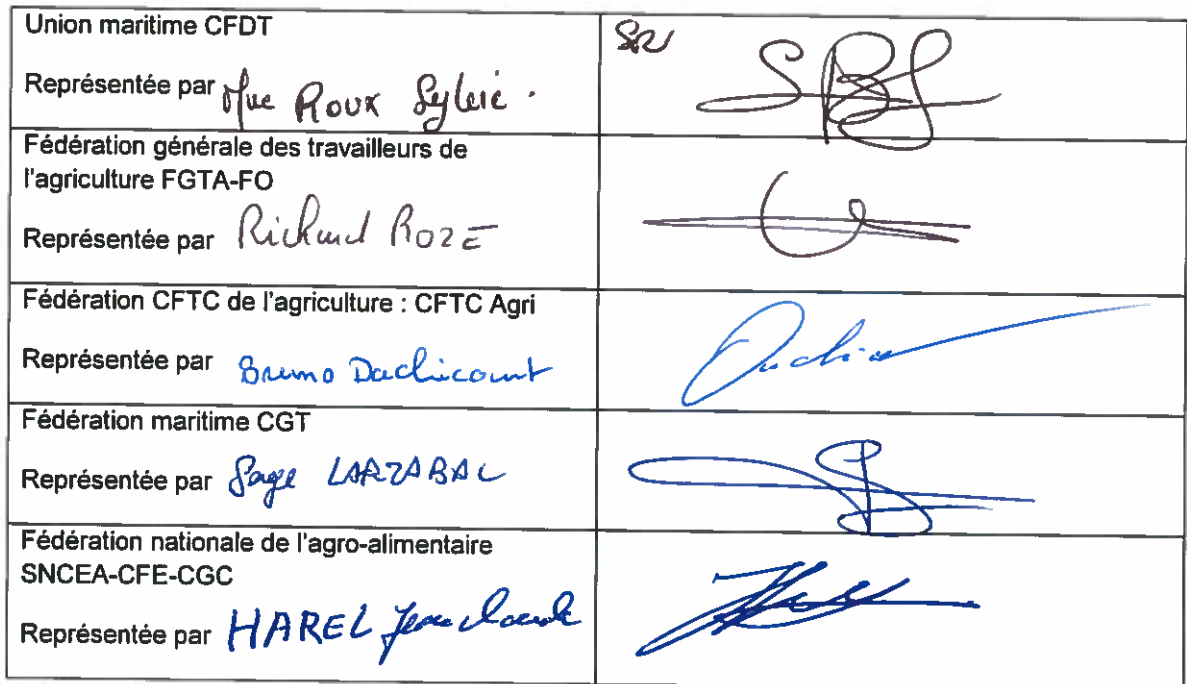 Union maritime CFDT
SR
Représentée par Mme Roux Sylvie.
Fédération générale des travailleurs de
l'agriculture FGTA-FO
Représentée par Richard ROZE
Fédération CFTC de l'agriculture : CFTC Agri
Représentée par Bruno Dachicourt
Fédération maritime CGT
Représentée par LARZABAL
Fédération nationale de l'agro-alimentaire
SNCEA-CFE-CGC
Représentée par HAREL Jean claude